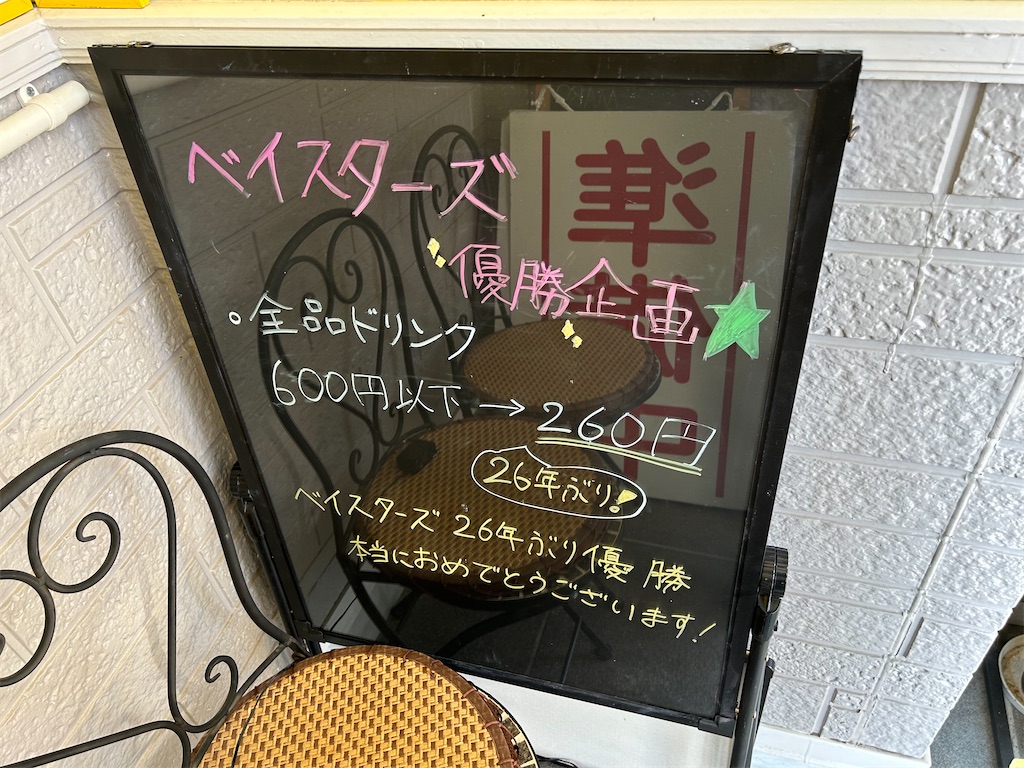 ベイスターズ
優勝企画
○全品ドリンク
600円以下→260円
26年ぶり!
ベイスターズ 26年ぶり優勝
本当におめでとうございます!
準備中